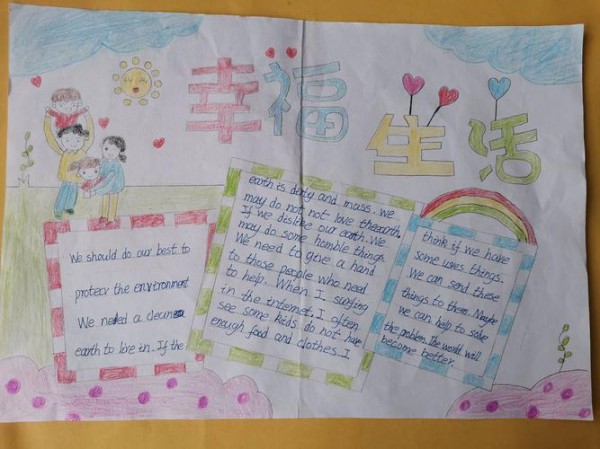 幸福
生活
We should do our best to
protect the environment
We need a cleaner
earth to live in. If the
earth is dirty and mass. We
may do not not love theearth.
If we dislike our earth. We
may do some homble things
We need to give a hand
to those people who need
to help. When I surfing
in the internet. I often
see some kids do not have
enough food and clothes. I
think if we have
some uses things.
We can send these
things to them. Maybe
we can help to solve
the problem. The world will
become better.